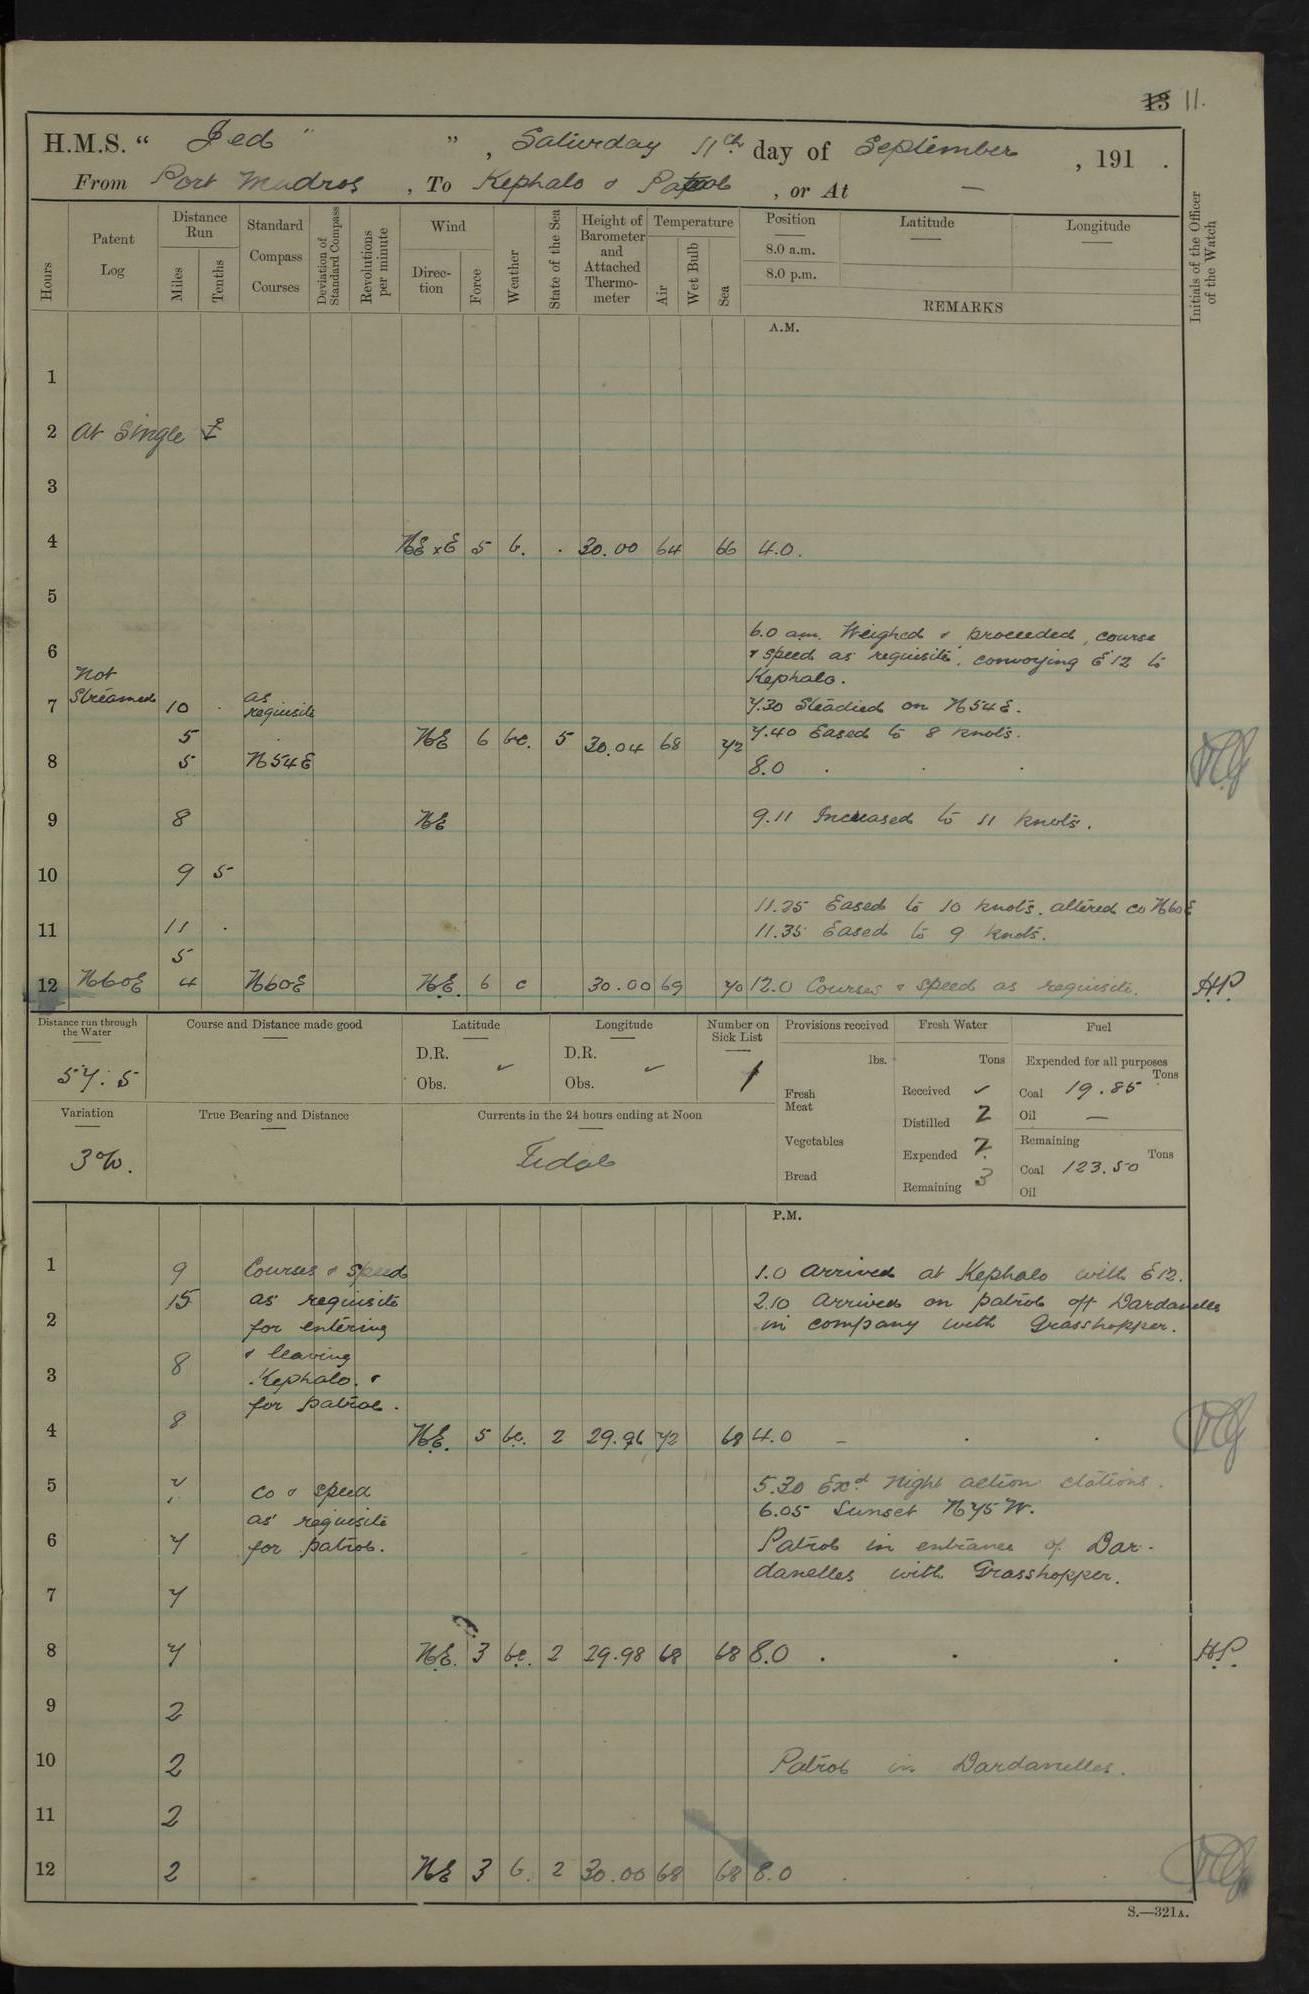 13 11.
H.M.S. “ Jed ” , Saturday 11th day of September , 191 .
From Port Mudros , To Kephalo & Patrol , or At —
Hours
Patent Log
Distance Run
Miles
Tenths
Standard Compass Courses
Deviation of Standard Compass
Revolutions per minute
Wind
Direction
Force
Weather
State of the Sea
Height of Barometer and Attached Thermometer
Temperature
Air
Wet Bulb
Sea
Position
8.0 a.m.
8.0 p.m.
Latitude
Longitude
REMARKS
Initials of the Officer of the Watch
A.M.
1
2 At Single
3
4 NE x E 5 b. . 30.00 64 66 4.0.
5
6.0 a.m. Weighed & proceeded, course
6 & speed as requisite, convoying E12 to
Not Kephalo.
7 Streamed 10 . as requisite 7.30 Steadied on N54E.
5 . NE 6 bc. 5 30.04 68 72 7.40 Eased to 8 knots.
8 5 N54E 8.0 . . .
9 8 NE 9.11 Increased to 11 knots.
10 9 5
11.25 Eased to 10 knots. altered co N60E
11 11 . 11.35 Eased to 9 knots.
5
12 N60E 4 N60E N.E. 6 c 30.00 69 70 12.0 Courses & speed as requisite. H.P.
Distance run through the Water
57.5
Course and Distance made good
Latitude
D.R.
Obs.
Longitude
D.R.
Obs.
Number on Sick List
1
Provisions received
lbs.
Fresh Meat
Vegetables
Bread
Fresh Water
Tons
Received ✓
Distilled 2
Expended 2
Remaining 3
Fuel
Expended for all purposes
Tons
Coal 19.85
Oil —
Remaining
Tons
Coal 123.50
Oil
Variation
3°W.
True Bearing and Distance
Currents in the 24 hours ending at Noon
Tidal
P.M.
1 9 Courses & speed 1.0 Arrived at Kephalo with E12.
15 as requisite 2.10 Arrived on patrol off Dardanelles
2 for entering in company with Grasshopper.
8 & leaving
3 Kephalo. &
for patrol.
4 8 N.E. 5 bc. 2 29.96 72 68 4.0 – . .
5 7 co & speed 5.30 Exd. Night action stations.
as requisite 6.05 Sunset N75W.
6 7 for patrol. Patrol in entrance of Dar-
danelles with Grasshopper.
7 7
8 7 N.E. 3 bc. 2 29.98 68 68 8.0 . . . H.P.
9 2
10 2 Patrol in Dardanelles.
11 2
12 2 NE 3 b. 2 30.00 68 68 8.0 . . .
S.—321A.